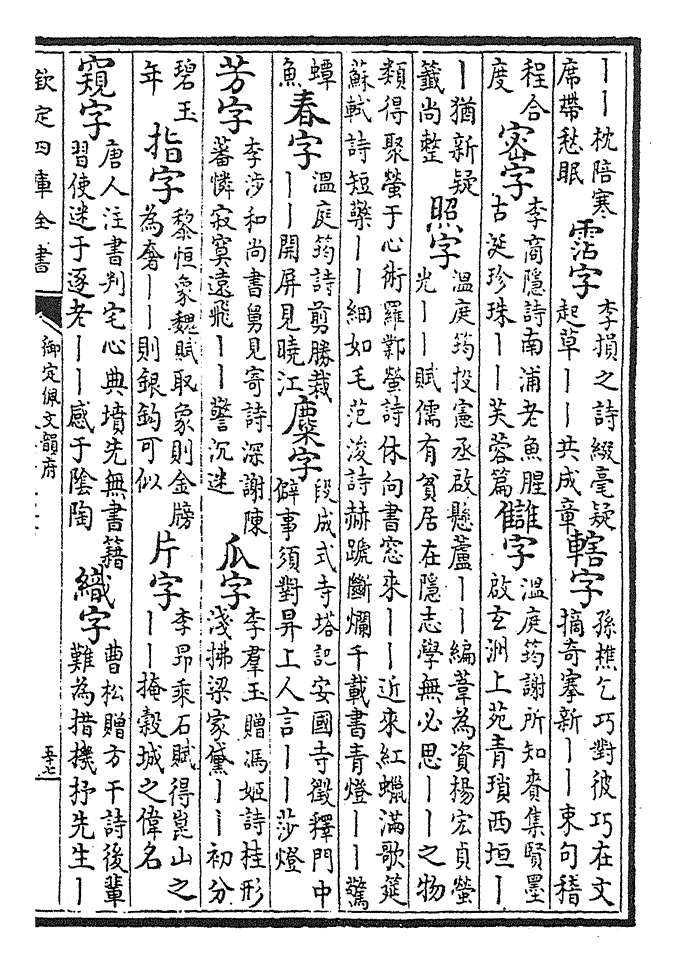 丨丨枕陪寒
席帶愁眠
霑字
李損之詩綴毫疑
起草丨丨共成章
轄字
孫樵乞巧對彼巧在文
摘奇搴新丨丨束句稽
程合
度
密字
李商隱詩南浦老魚腥
古涎珍珠丨丨芙蓉篇
讎字
溫庭筠謝所知賚集賢墨
啟玄洲上苑青瑣西垣丨
丨猶新疑
籤尚整
照字
溫庭筠投憲丞啟懸蘆丨丨編葦為資楊宏貞螢
光丨丨賦儒有貧居在隱志學無必思丨丨之物
類得聚螢于心術羅鄴螢詩休向書窓來丨丨近來紅蠟滿歌筵
蘇軾詩短藥丨丨細如毛范浚詩赫蹏斷爛千載書青燈丨丨驚
蟫
魚
春字
溫庭筠詩剪勝裁
丨丨開屏見曉江
麋字
段成式寺塔記安國寺徵釋門中
僻事須對昇上人言丨丨莎燈
芳字
李涉和尚書舅見寄詩深謝陳
蕃憐寂寞遠飛丨丨警沉迷
瓜字
李羣玉贈馮姬詩桂形
淺拂梁家黛丨丨初分
碧玉
年
指字
黎恒象魏賦取象則金牓
為奢丨丨則銀鈎可似
片字
李昂乘石賦得崑山之
丨丨掩穀城之偉名
窺字
唐人注書判宅心典墳先無書籍
習使迷于逐老丨丨感于陰陶
織字
曹松贈方干詩後輩
難為措機抒先生丨
欽定四庫全書
御定佩文韻府
五十七